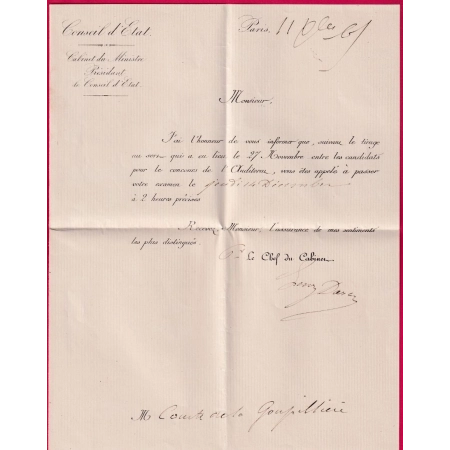 Conseil d'Etat.
Cabinet du Ministre
Président
du Conseil d'Etat.
Paris, 11 Xbre
Monsieur,
J'ai l'honneur de vous informer que, suivant le tirage
au sort qui a eu lieu le 27 Novembre entre les candidats
pour le concours de l'Auditorat, vous êtes appelé à passer
votre examen le jeudi Décembre
à 2 heures précises
Recevez, Monsieur, l'assurance de mes sentiments
les plus distingués.
Le Chef du Cabinet
M Comte de la Goupillière